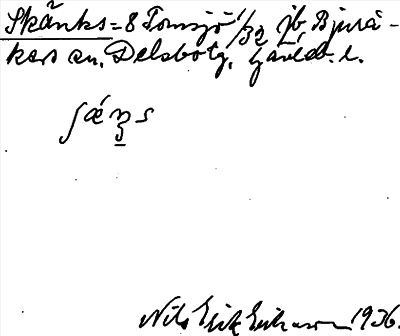 Skänks = 8 Tomsjö 1/32 jb Bjurå-
ker sn, Delsbo tg, Gävleb. l.
ʃǽŋs
Nils Erik Eriksson 1936.